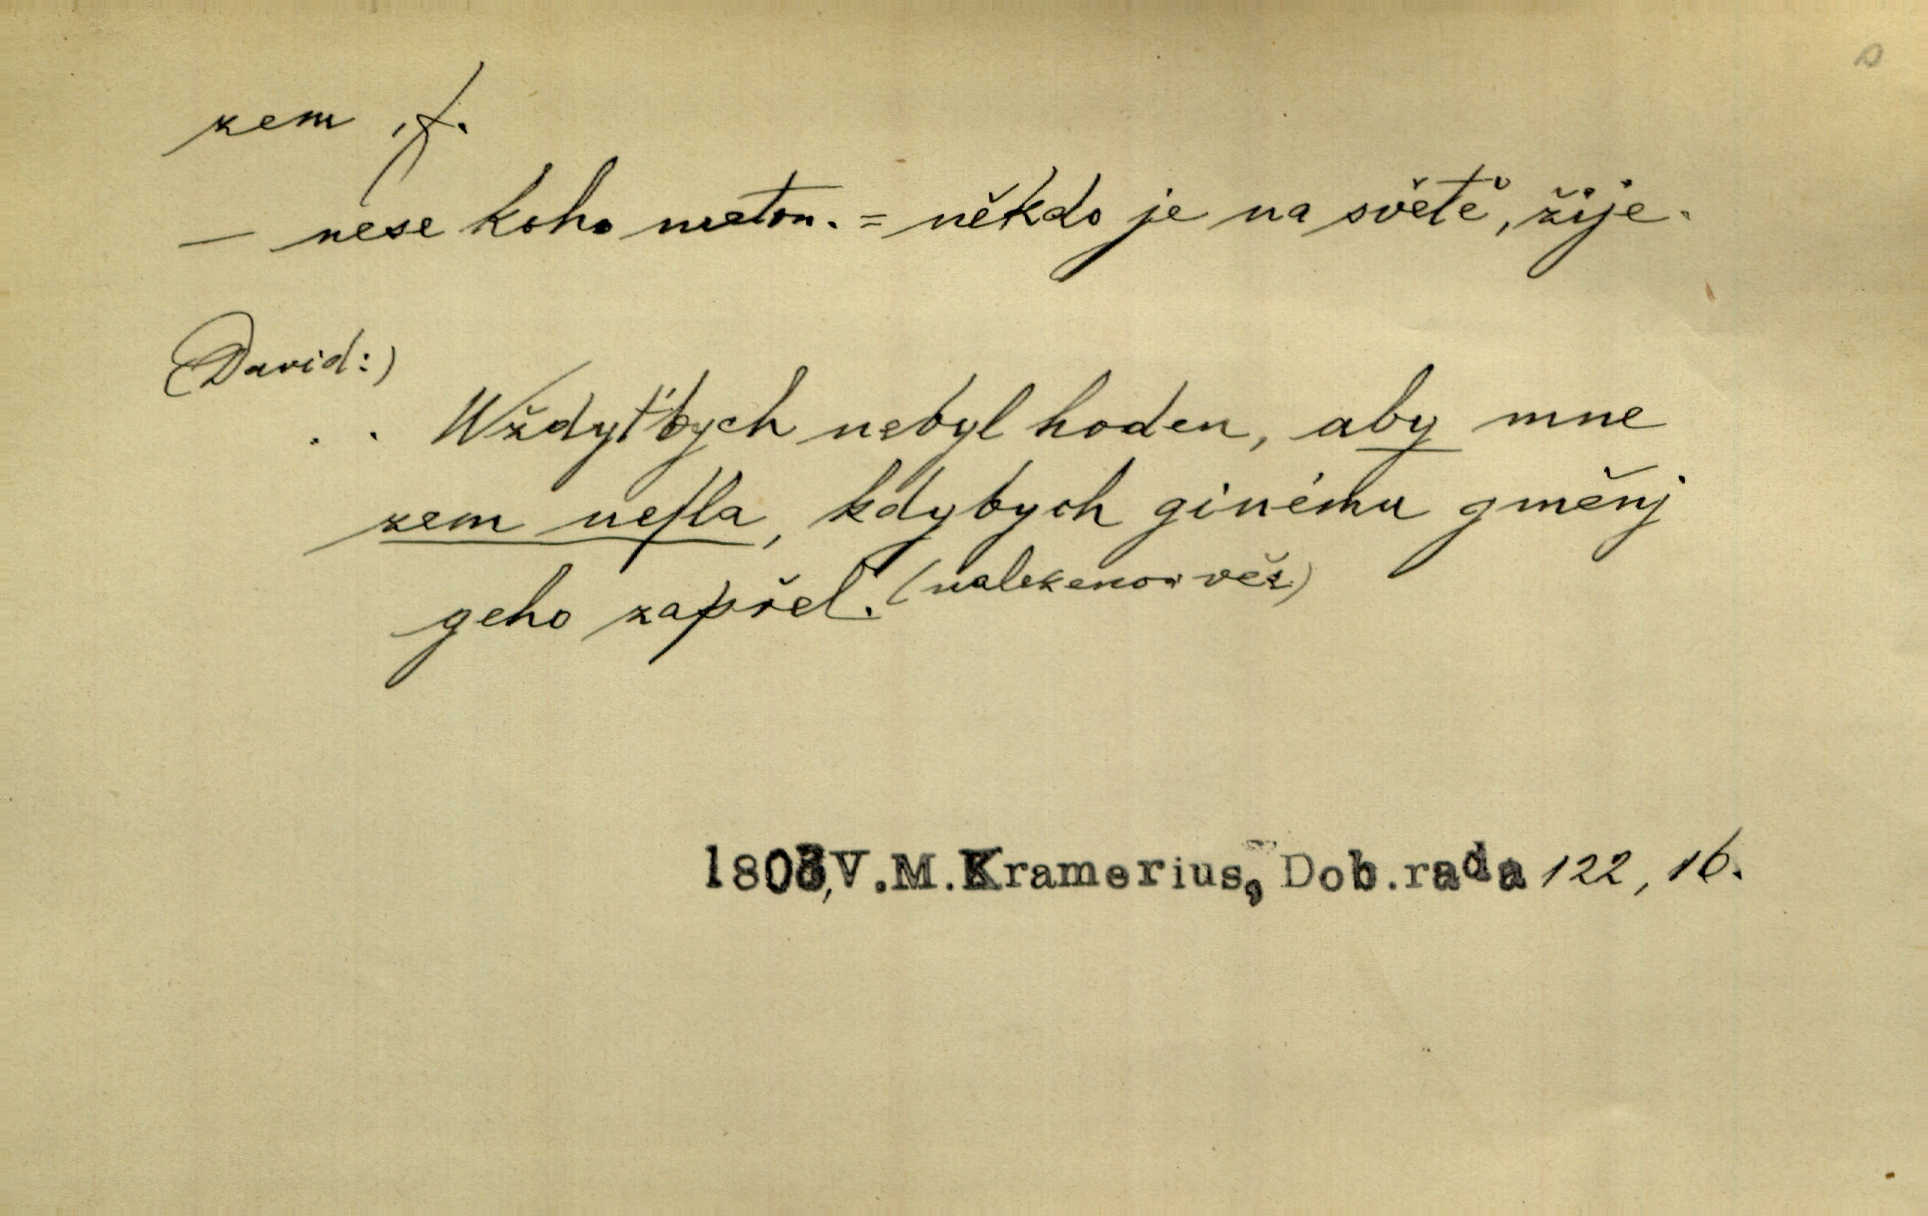 zem, f.
— nese koho meton. = někdo je na světě, žije.
(David:)
. . Wždyť bych nebyl hoden, aby mne
zem neſla, kdybych ginému gměnj
geho zapřel. (nalezenou věc)
1803, V.M.Kramerius, Dob.rada 122, 16.